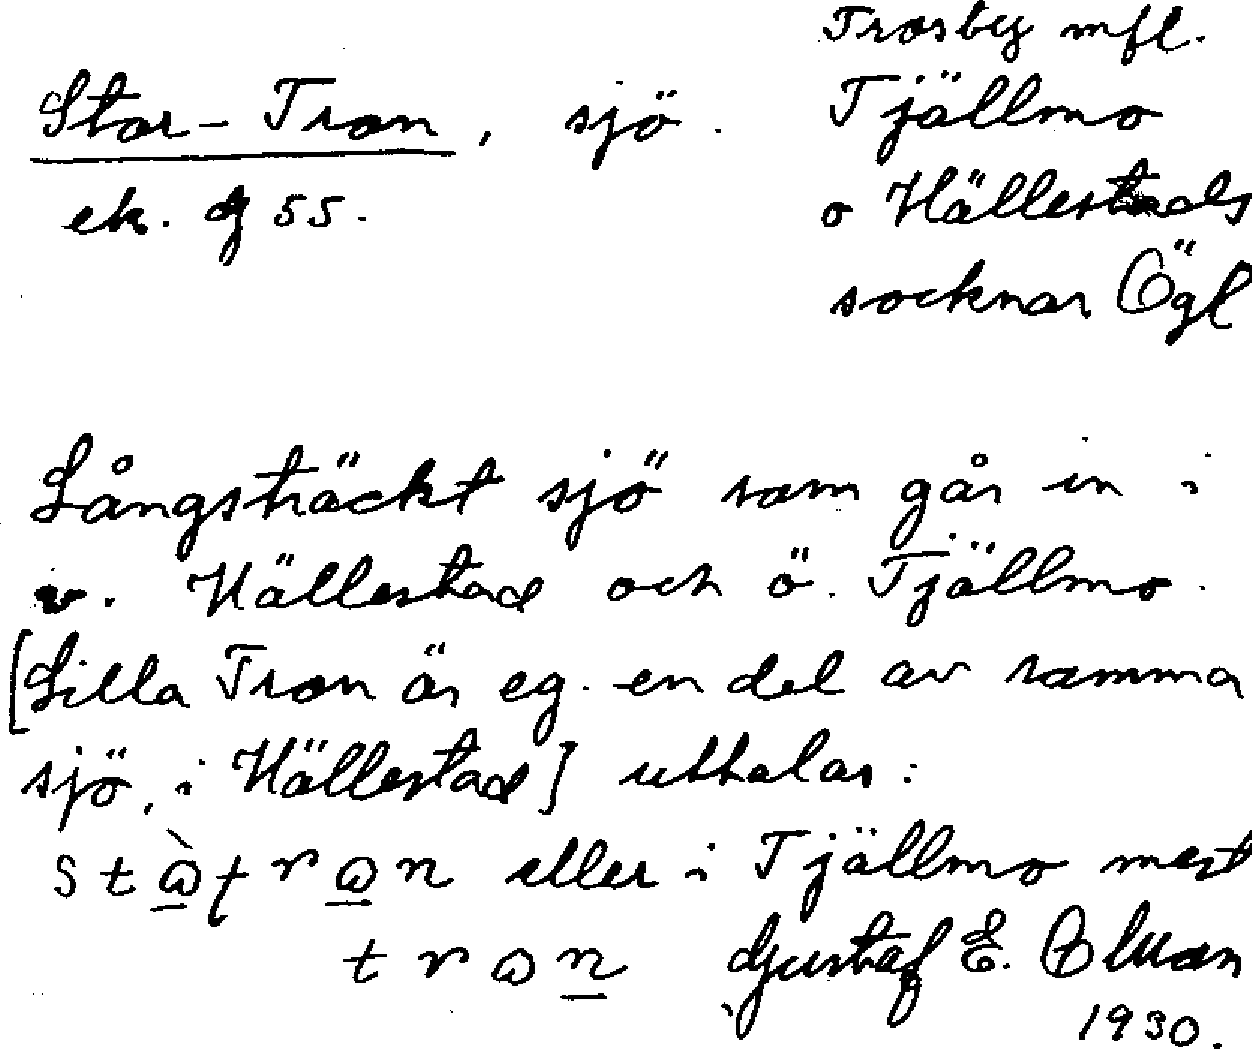 Trosby mfl.
Stor-Tron, sjö. Tjällmo
ek. 55. o Hällestads
socknar Ögl
Långsträckt sjö som går in i
v. Hällestad och ö. Tjällmo.
[Lilla Tron är eg. en del av samma
sjö, i Hällestad] uttalas:
eller i Tjällmo mest
Gustaf E.
1930.